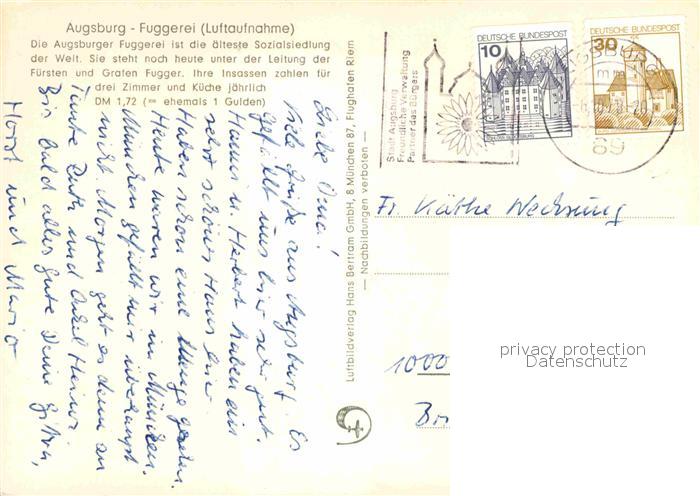 Augsburg - Fuggerei (Luftaufnahme)
Die Augsburger Fuggerei ist die älteste Sozialsiedlung
der Welt. Sie steht noch heute unter der Leitung der
Fürsten und Grafen Fugger. Ihre Insassen zahlen für
drei Zimmer und Küche jährlich
DM 1,72 (= ehemals 1 Gulden)
Liebe Oma!
Viele Grüße aus Augsburg. Es
gefällt uns hier sehr gut.
Hanni u. Herbert haben ein
sehr schönes Haus hier.
Haben schon eine Menge gesehen.
Heute waren wir in München.
München gefällt mir überhaupt
nicht. Morgen geht es dann an
Tante Ruth und Onkel Heinz.
Bis bald alles Gute Deine
Horst und Mario
Luftbildverlag Hans Bertram GmbH, 8 München 87, Flughafen Riem
— Nachbildungen verboten —
Stadt Augsburg
Freundliche Verwaltung
Partner des Bürgers
10
DEUTSCHE BUNDESPOST
30
DEUTSCHE BUNDESPOST
89
Fr. Käthe
1000
privacy protection
Datenschutz